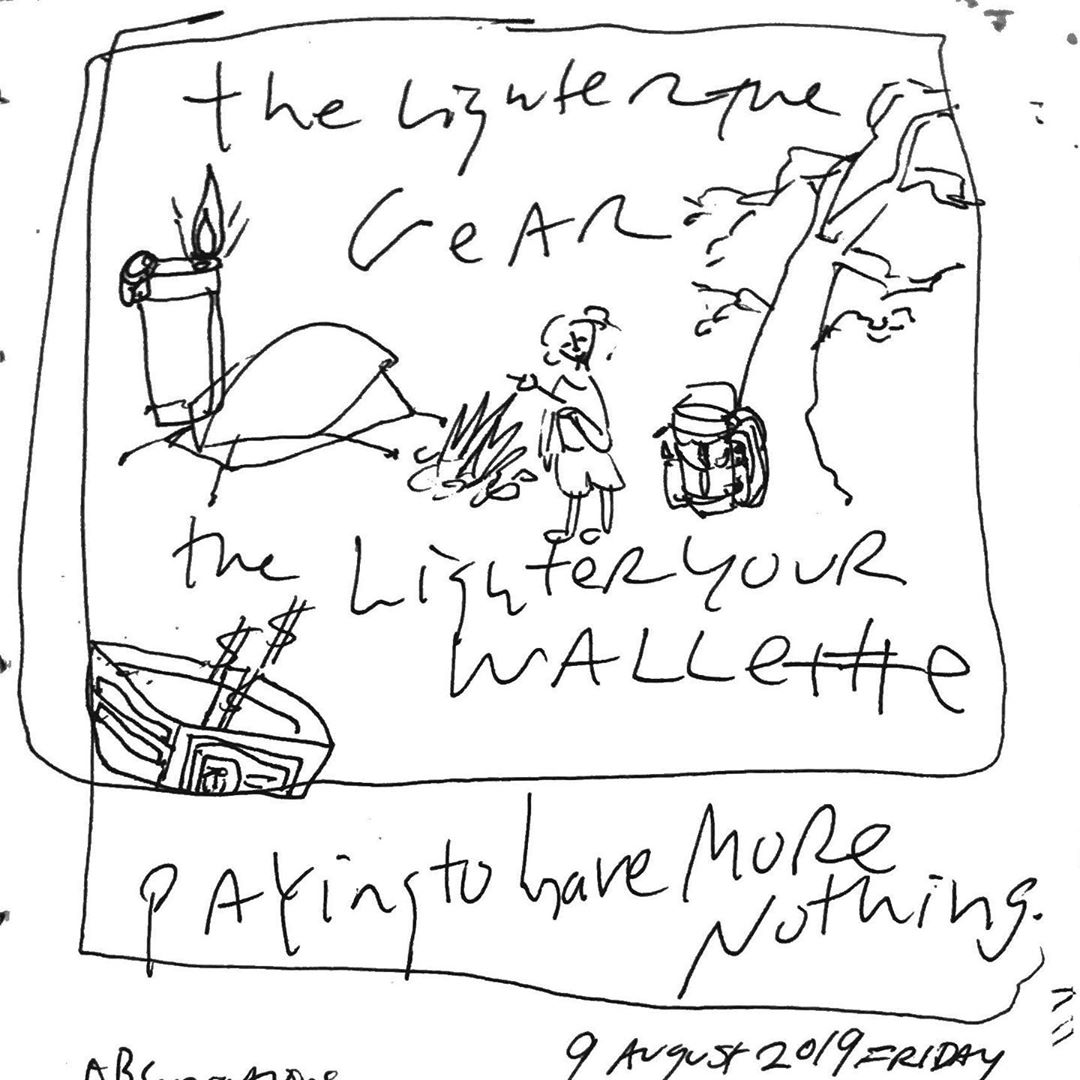 the Lighter the
GeAR
the LighTeR YOUR
WALLette
$ $
PAYing to have MoRe
NoThing.
9 AUGUST 2019 FRIDAY